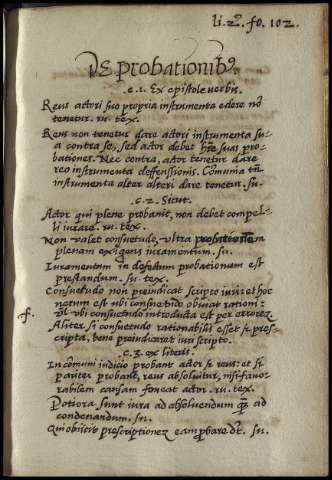 li. 2º. fo. 102.
De probationib9
.c. 1. Ex epistole verbis.
Reus actori suo propria instrumenta edere nõ
tenetur. ru. tex.
Reus non tenetur dare actori instrumenta su-
a contra se, sed actor debet hr̃e suas pro-
bationes. Nec contra, actor tenetur dare
reo instrumenta deffenssionis. Cõmunia tñ
instrumenta alter alteri dare tenetur. su.
.c. 2. Sicut.
Actor qui plene probauit, non debet conpel-
li iurare. ru. tex.
Non valet consuetudo, vltra probationem
plenam exigens iuramentum. su.
Iuramentum in defectum probationum est
prestandum. su. tex.
Consuetudo non preiudicat scripto iuri: et hoc
uerum est vbi consuetudo obuiat rationi:
vl̃ vbi consuetudo introducta est per errorez.
Aliter si consuetudo rationabilis esset & pres-
cripta, bene preiudicaret iuri scripto.
.c. 3. ex literis.
In cõmuni iudicio probant actor & reus: et si
pariter probant, reus absoluitur, nisi fauo-
rabilem causam foueat actor. ru. tex.
Potiora sunt iura ad absoluendum q̃z ad
condenandum. su.
Qui obiicit prescriptionez eam p̱bare dt̃. su.